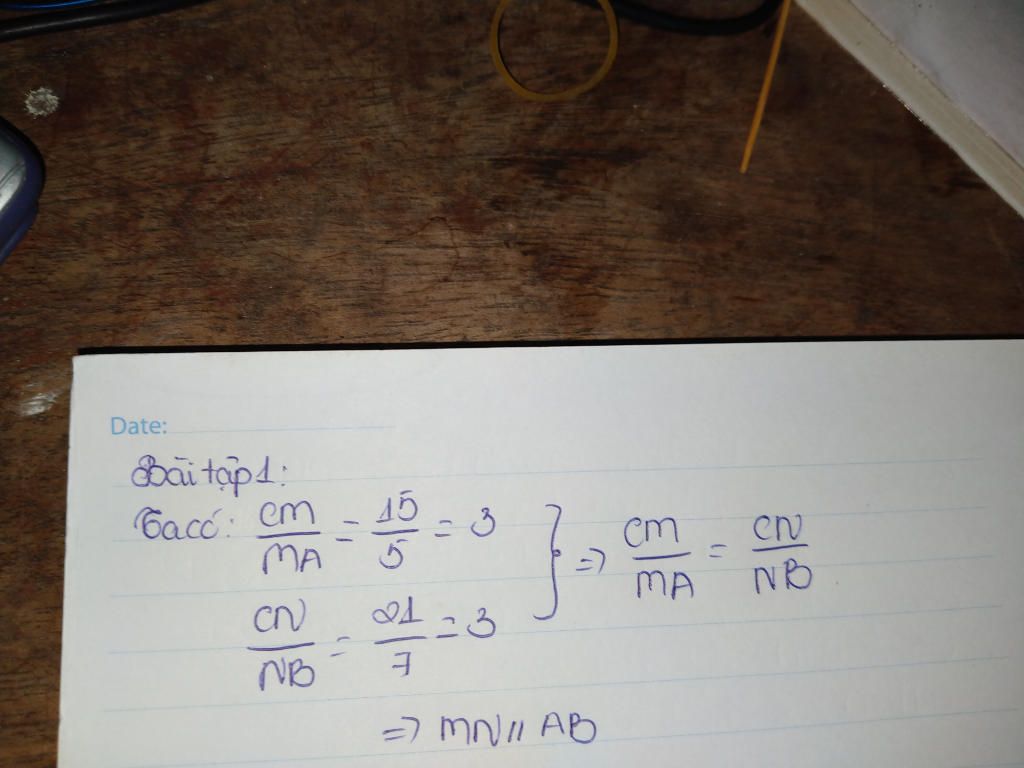 Date:
Bài tập 1:
Ta có: CM/MA = 15/5 = 3
CN/NB = 21/7 = 3
} => CM/MA = CN/NB
=> MN // AB